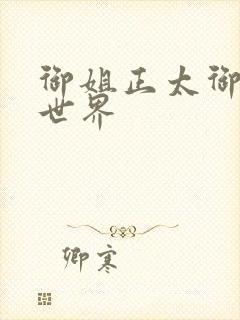 御姐正太御
世界
卿寒